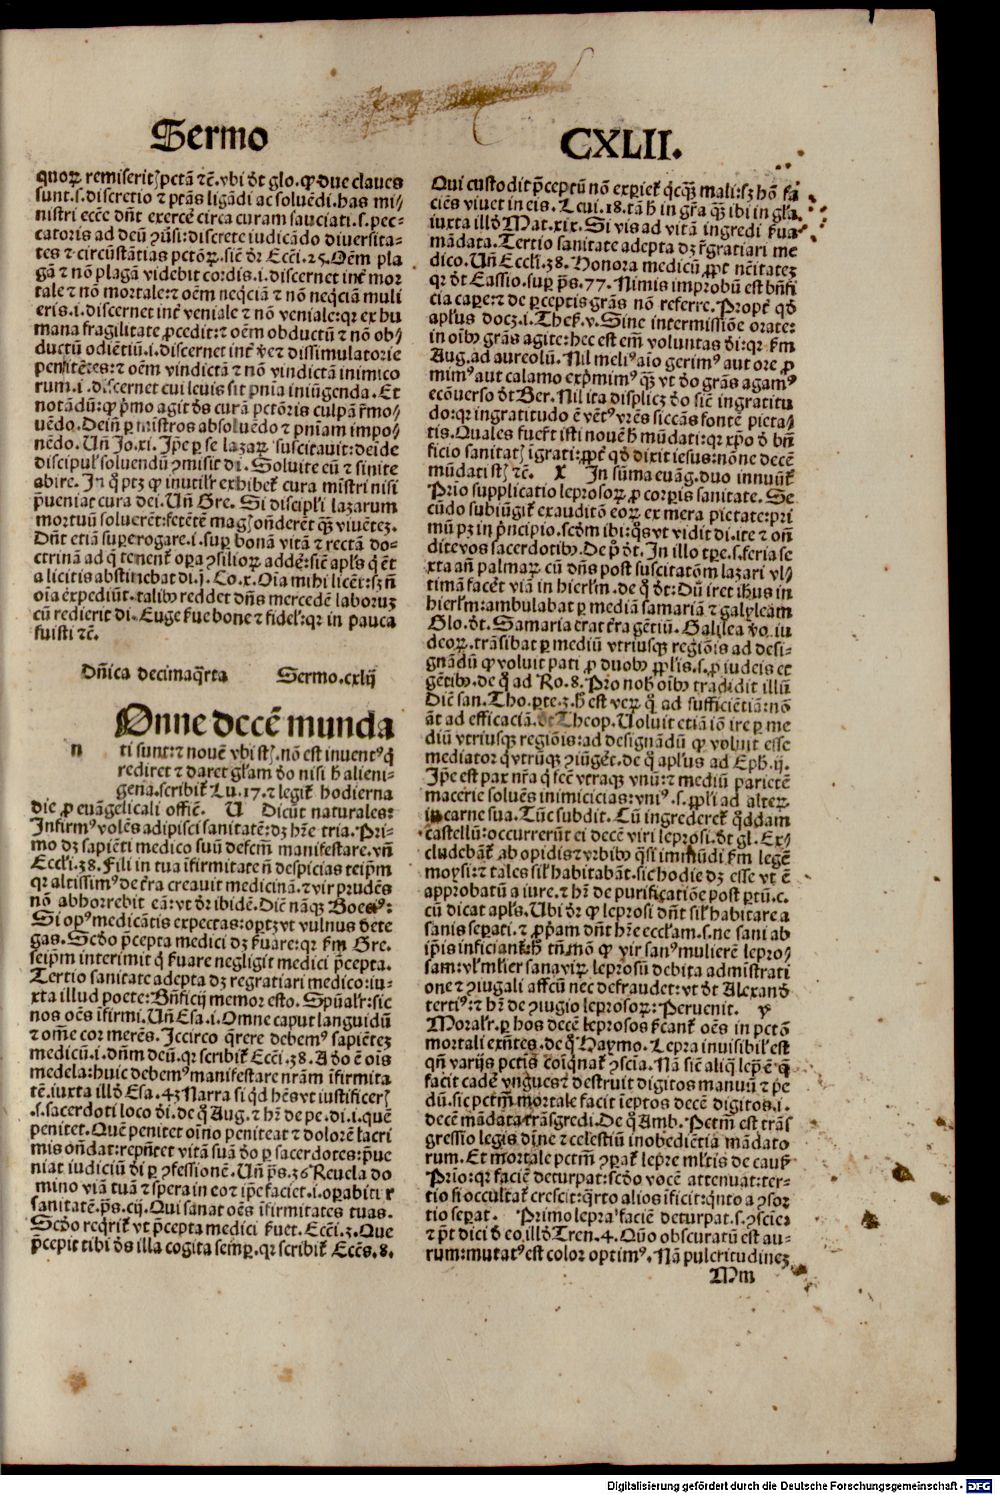 Sermo CXLII.
quoꝝ remiseritꝭ pctā ⁊c̄. vbi d̄t glo. ꝙ due claues
sunt. s. discretio ⁊ ptās ligādi ac soluēdi. has mi⸗
nistri ecc̄e dn̄t exercē circa curam sauciati. s. pec⸗
catoris ad deū ꝯūsi: discrete iudicādo diuersita⸗
tes ⁊ circūstātias pctōꝝ. sic̄ d̄r Ecc̄i. 25. Oēm pla
gā ⁊ nō plagā videbit cordis. i. discernet int̄ mor
tale ⁊ nō mortale: ⁊ oēm neqͥciā ⁊ nō neqͥciam muli
eris. i. discernet int̄ veniale ⁊ nō veniale: qꝛ ex hu
mana fragilitate ꝓcedit: ⁊ oēm obductū ⁊ nō ob⸗
ductū odiētiū. i. discernet int̄ ve̾ ⁊ dissimulatorie
penitētes: ⁊ oēm vindictā ⁊ nō vindictā inimico
rum. i. discernet cui leuis sit pn̄ia iniūgenda. Et
notādū: ꝙ pͥmo agit dn̄s curā pctōris culpā rͤmo⸗
uēdo. Dein̄ ꝑ mīstros absoluēdo ⁊ pn̄iam impo⸗
nēdo. Un̄ Jo. xi. Jp̄e ꝑ se lazaꝝ suscitauit: deīde
discipul̓ soluendū ꝯmisit di. Soluite eū ⁊ sinite
abire. In qͦ ptꝫ ꝙ inutilr̄ exhibet̄ cura mīstri nisi
p̄ueniat cura dei. Un̄ Gre. Si discipl̓i lazarum
mortuū soluerēt: fetētē magꝭ on̄derēt qͣꝫ viuētez.
Dn̄t etiā suꝑerogare. i. suꝑ bonā vitā ⁊ rectā do⸗
ctrinā ad qͥ tenent̄ oꝑa ꝯsilioꝝ adde̾: sic̄ apl̓s qͥ ēt
a licitis abstinebat di. j. Co. x. Oīa mihi licēt: sꝫ n̄
oīa expediūt. talibꝰ reddet dn̄s mercedē laboruꝫ
cū redierit di. Euge s̾ue bone ⁊ fidel̓: qꝛ in pauca
fuisti ⁊c̄.
Dn̄ica decimaqͣrta Sermo. cxlij
Onne decē munda
n ti sunt: ⁊ nouē vbi stꝭ. nō est inuentꝰ qͥ
rediret ⁊ daret gl̓am dō nisi h̄ alieni⸗
gena. scribit̄ Lu. 17. ⁊ legit̄ hodierna
die ꝓ euāgelicali offic̄. U Dicūt naturales:
Infirmꝰ volēs adipisci sanitatē: dꝫ hr̄e tria. Pri⸗
mo dꝫ sapiēti medico suū defcm̄ manifestare. vn̄
Eccl̓i. 38. Fili in tua īfirmitate n̄ despicias teip̄m
qꝛ altissimꝰ de t̾ra creauit medicinā. ⁊ vir prudēs
nō abhorrebit eā: vt d̄r ibidē. Dic̄ nāqꝫ Boeꝰ:
Si opꝰ medicātis expectas: oꝑtꝫ vt vulnus dete
gas. Scd̄o p̄cepta medici dꝫ s̾uare: qꝛ s̾m Gre.
seip̄m interimit qͥ s̾uare negligit medici p̄cepta.
Tertio sanitate adepta dꝫ regratiari medico: iu⸗
xta illud poete: Bn̄ficij memor esto. Spūalr̄: sic
nos oēs īfirmi. Un̄ Esa. i. Omne caput languidū
⁊ om̄e cor merēs. Iccirco qͣrere debemꝰ sapiētez
medicū. i. dn̄m deū. qꝛ scribit̄ Ecc̄i. 38. A dō ē oīs
medela: huic debemꝰ manifestare nr̄am īfirmita
tē. iuxta illd̓ Esa. 43 Narra si qͥd hēs vt iustificerꝭ
. s. sacerdoti loco dī. de qͦ Aug. ⁊ hr̄ de pe. di. i. quē
penitet. Quē penitet oīno peniteat ⁊ dolorē lacri
mis on̄dat: repn̄tet vitā suā dō ꝑ sacerdotes: p̄ue
niat iudiciū dī ꝑ ꝯfessionē. Un̄ ps̄. 36 Reuela do
mino viā tuā ⁊ spera in eo ⁊ ip̄e faciet. i. oꝑabit̄
sanitatē. ps̄. cij. Qui sanat oēs īfirmitates tuas.
Scd̄o reqͥrit̄ vt p̄cepta medici s̾uet. Ecc̄i. 3. Que
p̄cepit tibi dn̄s illa cogita semꝑ. qꝛ scribit̄ Ecc̄s. 8.
Qui custodit p̄ceptū nō exꝑiet̄ qͥcqͣꝫ mali: sꝫ hō fa
ciēs viuet in eis. Leui. 18. tā h̄ in gr̄a qͣꝫ ibi in gl̓a
iuxta illd̓ Mat. xix. Si vis ad vitā ingredi s̾ua
mādata. Tertio sanitate adepta dꝫ rͤgratiari me
dico. Un̄ Eccl̓i. 38. Honora medicū ꝓpt̄ nc̄itatez
qꝛ d̄t Cassio. suꝑ ps̄. 77. Nimis improbū est bn̄fi
cia caꝑe: ⁊ de ꝑceptis grās nō referre. Propt̄ qd̓
apl̓us docꝫ. i. Thes̓. v. Sine intermissiōe orate:
in oībꝰ grās agite: hec est em̄ voluntas dī: qꝛ s̾m
Aug. ad aureolū. Nil meliꝰ aīo gerimꝰ aut ore ꝓ
mimꝰ aut calamo exp̄mimꝰ qͣꝫ vt dō grās agamꝰ
ecōuerso d̄t Ber. Nil ita displicꝫ dō sic̄ ingratitu
do: qꝛ ingratitudo ē vētꝰ vrēs siccās fontē pieta⸗
tis. Quales fuer̄t isti nouē h̄ mūdati: qꝛ xp̄o d̄ bn̄
ficio sanitatꝭ īgrati: ꝓpt̄ qd̓ dixit iesus: nōne decē
mūdati stꝭ ⁊c̄. X In sūma euāg. duo innuūt̄
Prīo supplicatio leprosoꝝ ꝓ corꝑis sanitate. Se
cūdo subiūgit̄ exauditō eoꝝ ex mera pietate: pri
mū pꝫ in pͥncipio. scd̓m ibi: qͦs vt vidit di. ite ⁊ on̄
dite vos sacerdotibꝰ. De pͥ d̄t. In illo tꝑe. s. feria se
xta an̄ palmaꝝ cū dn̄s post suscitatōm lazari vl⸗
timā facēt viā in hierl̓m. de qͦ d̄t: Dū iret ih̓us in
hierl̓m: ambulabat ꝑ mediā samariā ⁊ galyleam
Glo. d̄t. Samaria erat t̾ra gētiū. Galilea vō iu
deoꝝ. trāsibat ꝑ mediū vtriusqꝫ regiōis ad desi⸗
gnādū ꝙ voluit pati ꝓ duobꝰ ꝓpl̓is. s. ꝓ iudeis et
gētibꝰ. de qͦ ad Ro. 8. Pro nob̓ oībꝰ tradidit illū
Dic̄ san. Tho. ꝑte. 3. h̄ est veꝝ qͦ ad sufficiētiā: nō
āt ad efficaciā. d̄t Theop. Uoluit etiā iō ire ꝑ me
diū vtriusqꝫ regiōis: ad designādū ꝙ voluit esse
mediator qͥ vtrūqꝫ ꝯiūget. de qͦ apl̓us ad Eph. ij.
Jp̄e est pax nr̄a qͥ fec̄ vtraqꝫ vnū: ⁊ mediū parietē
macerie soluēs inimicicias: vniꝰ. s. ꝓpl̓i ad alteꝝ
in carne sua. Tūc subdit. Cū ingrederet̄ qͦddam
castellū: occurrerūt ei decē viri leprosi. d̄t gl. Ex⸗
cludebāt̄ ab opidis ⁊ vrbibꝰ qͣsi immūdi s̾m legē
moysi: ⁊ tales sil̓ habitabāt. sic hodie dꝫ esse vt ē
approbatū a iure. ⁊ hr̄ de purificatiōe post ꝑtū. c.
cū dicat apl̓s. Ubi d̄r ꝙ leprosi dn̄t sil̓ habitare a
sanis seꝑati. ⁊ ꝓpͥam dn̄t hr̄e eccl̓am. s. ne sani ab
ip̄is inficiant̄: h̄ tn̄ mō ꝙ vir sanꝰ mulierē lepro⸗
sam: vl̓ ml̓ier sana viꝝ leprosū debita admīstrati
one ⁊ ꝯiugali affcū nec defraudet: vt d̄t Alexand̓
tertiꝰ: ⁊ hr̄ de ꝯiugio leprosoꝝ: Peruenit. y
Moralr̄. ꝑ hos decē leprosos s̾cant̄ oēs in pctō
mortali exn̄tes. de qͦ Haymo. Lepra inuisibil̓ est
qn̄ varijs pctīs coīqͥnat̄ ꝯscīa. Nā sic̄ aliqͥ lepͥ ē qͥ
facit cade̾ vngues ⁊ destruit digitos manuū ⁊ pe
dū. sic pctm̄ mortale facit īeptos decē digitos. i.
decē mādata trāsgredi. De qͦ Amb. Pctm̄ est trās
gressio legis dīne ⁊ celestiū inobediētia mādato
rum. Et mortale pctm̄ ꝯꝑat̄ lepre ml̓tis de caus̓
Prīo: qꝛ faciē deturpat: scd̄o vocē attenuat: ter⸗
tio si occultat̄ crescit: qͣrto alios īficit: qͥnto a ꝯsor
tio seꝑat. Primo lepra faciē deturpat. s. ꝯscīe:
⁊ pt̄ dici d̄ eo illd̓ Tren. 4. Quō obscuratū est au⸗
rum: mutatꝰ est color optimꝰ. Nā pulcritudinez
Mm
Digitalisierung gefördert durch die Deutsche Forschungsgemeinschaft - DFG